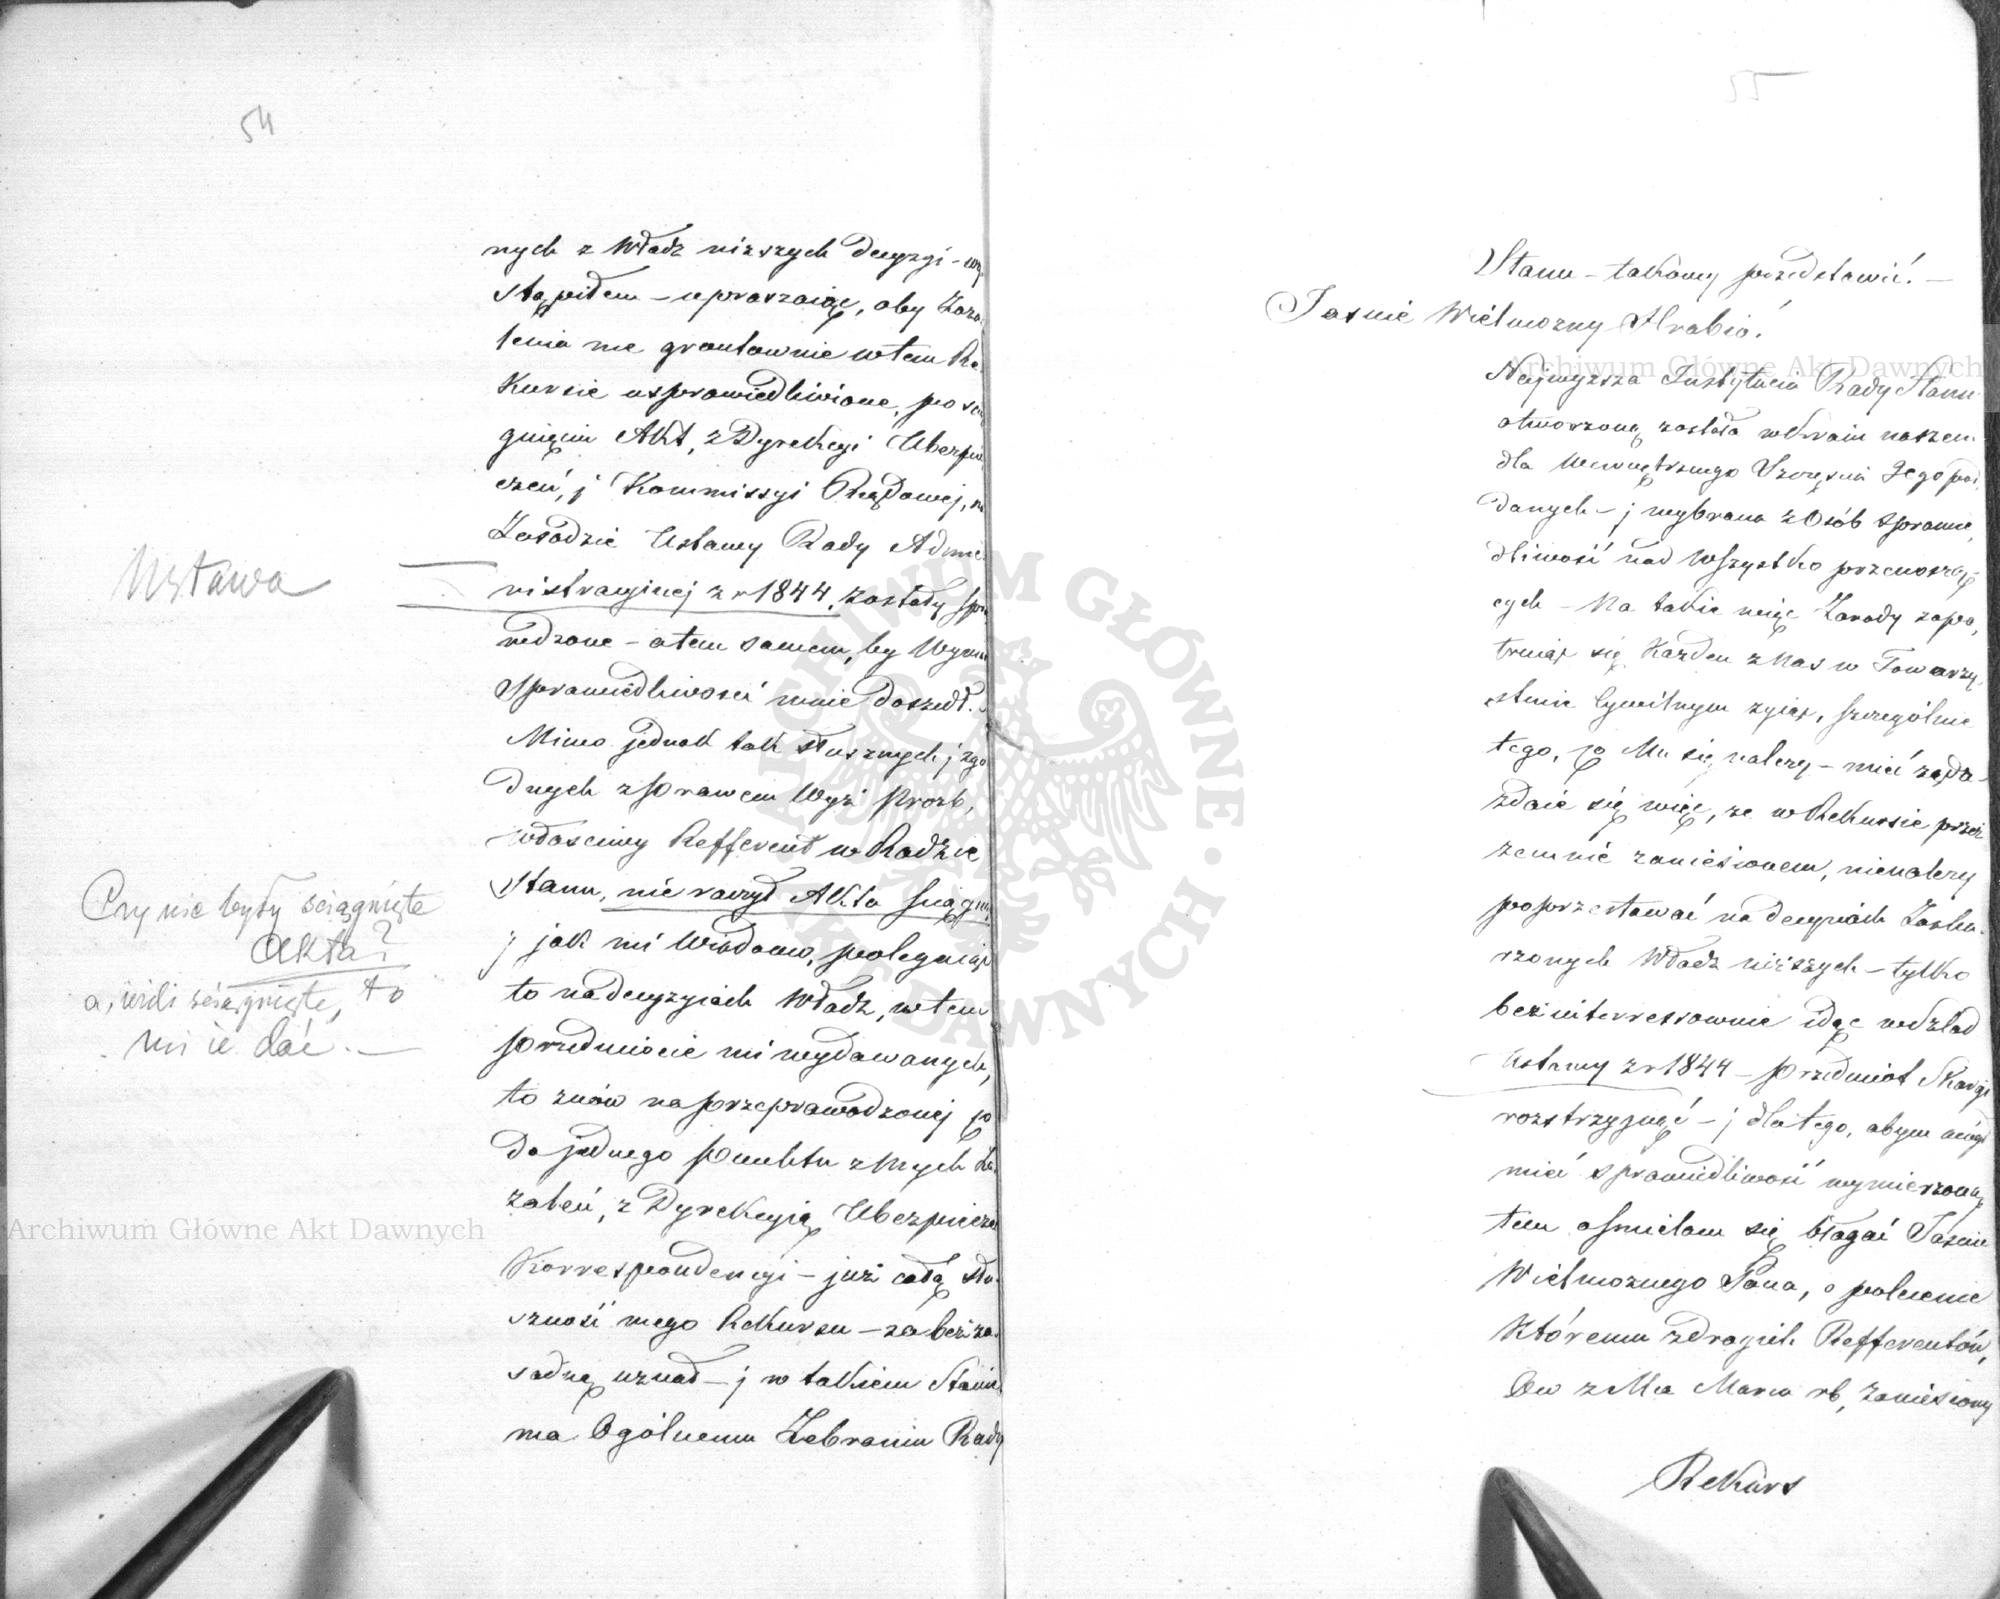 54
nych z Władz niższych Decyzyi – wy
stąpiłem – upraszaiąc, aby Zaża
lenia me grontownie w tem Re
kursie usprawiedliwione, po ścią
gnięciu Akt, z Dyrekcyi Ubezpie
czeń, j Kommissyi Rządowej, na
Zasadzie Ustawy Rady Admi
nistracyinej z r 1844, zostały spra
wdzone – a tem samem, by Wymiar
Sprawiedliwości mnie doszedł. –
Mimo jednak tak słusznych j zgo
dnych z prawem Wyż próźb,
właściwy Refferent w Radzie
Stanu, nie raczył Akta ściągnąć
j jak mi Wiadomo, polegaiąc
to na decyzyiach Władz, w tem
przedmiocie mi wydawanych,
to znów na przeprawadzonej co
do jednego punktu z Mych Za
żaleń, z Dyrekcyią Ubezpiecze
Korrespondencyi – już całą słu
szność mego Rekursu – za bezza
sadną uznał – j w takiem Stanie
ma Ogólnemu Zebraniu Rady
Ustawa
Czy nie były ściągnięte
Akta?
a, jeśli ściągnięte, to
mi je dać. –
55
Stanu – takowy przedstawić. –
Jaśnie Wielmożny Hrabio!
Najwyższa Instytucia Rady Stanu
otworzoną została w Kraiu naszem
dla Wewnętrznego Szczęścia Jego pod
danych – j wybrana z Osób Sprawie
dliwość nad Wszystko przenoszą
cych – Na takie więc Zasady zapa
truiąc się Każden z Nas w Towarzy
stwie Cywilnym żyiąc, szczególnie
tego, co Mu się należy – mieć żąda –
zdaie się więc, że w Rekursie prze
zemnie zaniesionem, nienależy
poprzestawać na decyziach Zaska
rżonych Władz niższych – tylko
bezinterressownie idąc w Ślad
Ustawy z r 1844 – przedmiot Skargi
rozstrzygnąć – j dlatego, abym mógł
mieć sprawiedliwość wymierzoną
tem ośmielam się błagać Jaśnie
Wielmożnego Pana, o polecenie
któremu z drogich Refferentów,
Ow z Mca Marca rb, zaniesiony
Rekurs
Archiwum Główne Akt Dawnych
Archiwum Główne Akt Dawnych
ARCHIWUM GŁÓWNE AKT DAWNYCH